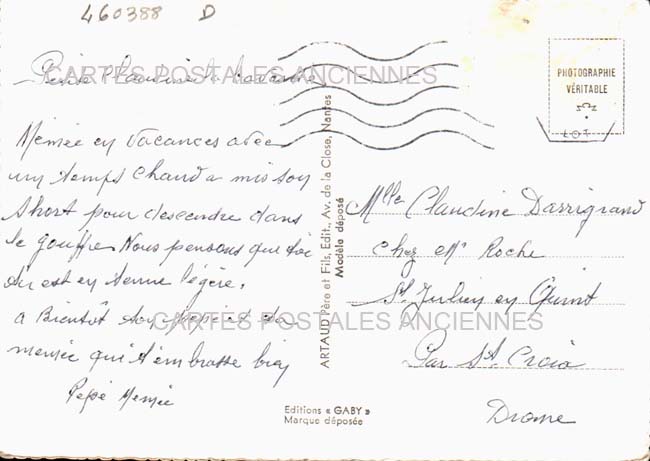 460388 D
Petite Claudine
CARTES POSTALES ANCIENNES
Mémée en vacances avec
un temps chaud a mis son
short pour descendre dans
le gouffre. Nous pensons que toi
est en tenue légère.
a Bientôt ton pépé et ta
mémée qui t'embrasse bien
Pépé Mémée
PHOTOGRAPHIE
VÉRITABLE
LOT
ARTAUD Père et Fils, Edit., Av. de la Close, Nantes
Modèle déposé
Mlle Claudine Darrigrand
chez Mr Roche
St Julien en Quint
CARTES POSTALES ANCIENNES
Par Ste Croix
Drome
Editions « GABY »
Marque déposée